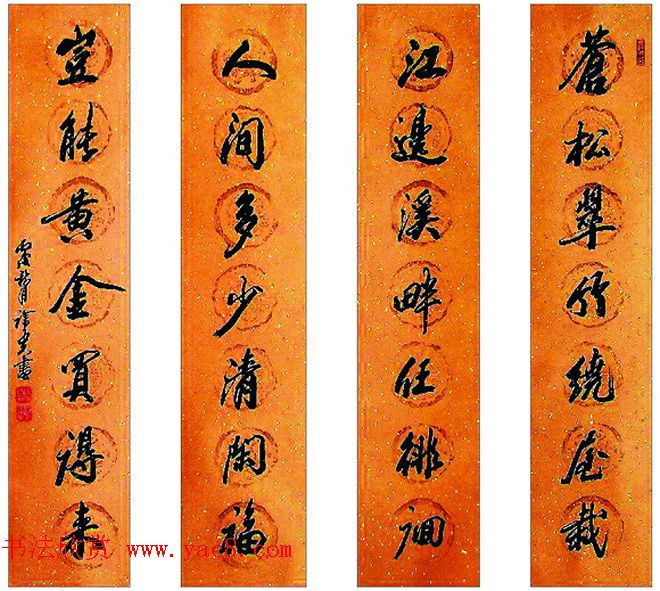 蒼松翠竹繞屋栽
江邊溪畔任徘徊
人間多少清閑福
豈能黃金買得来
书法欣赏 www.yac8.com